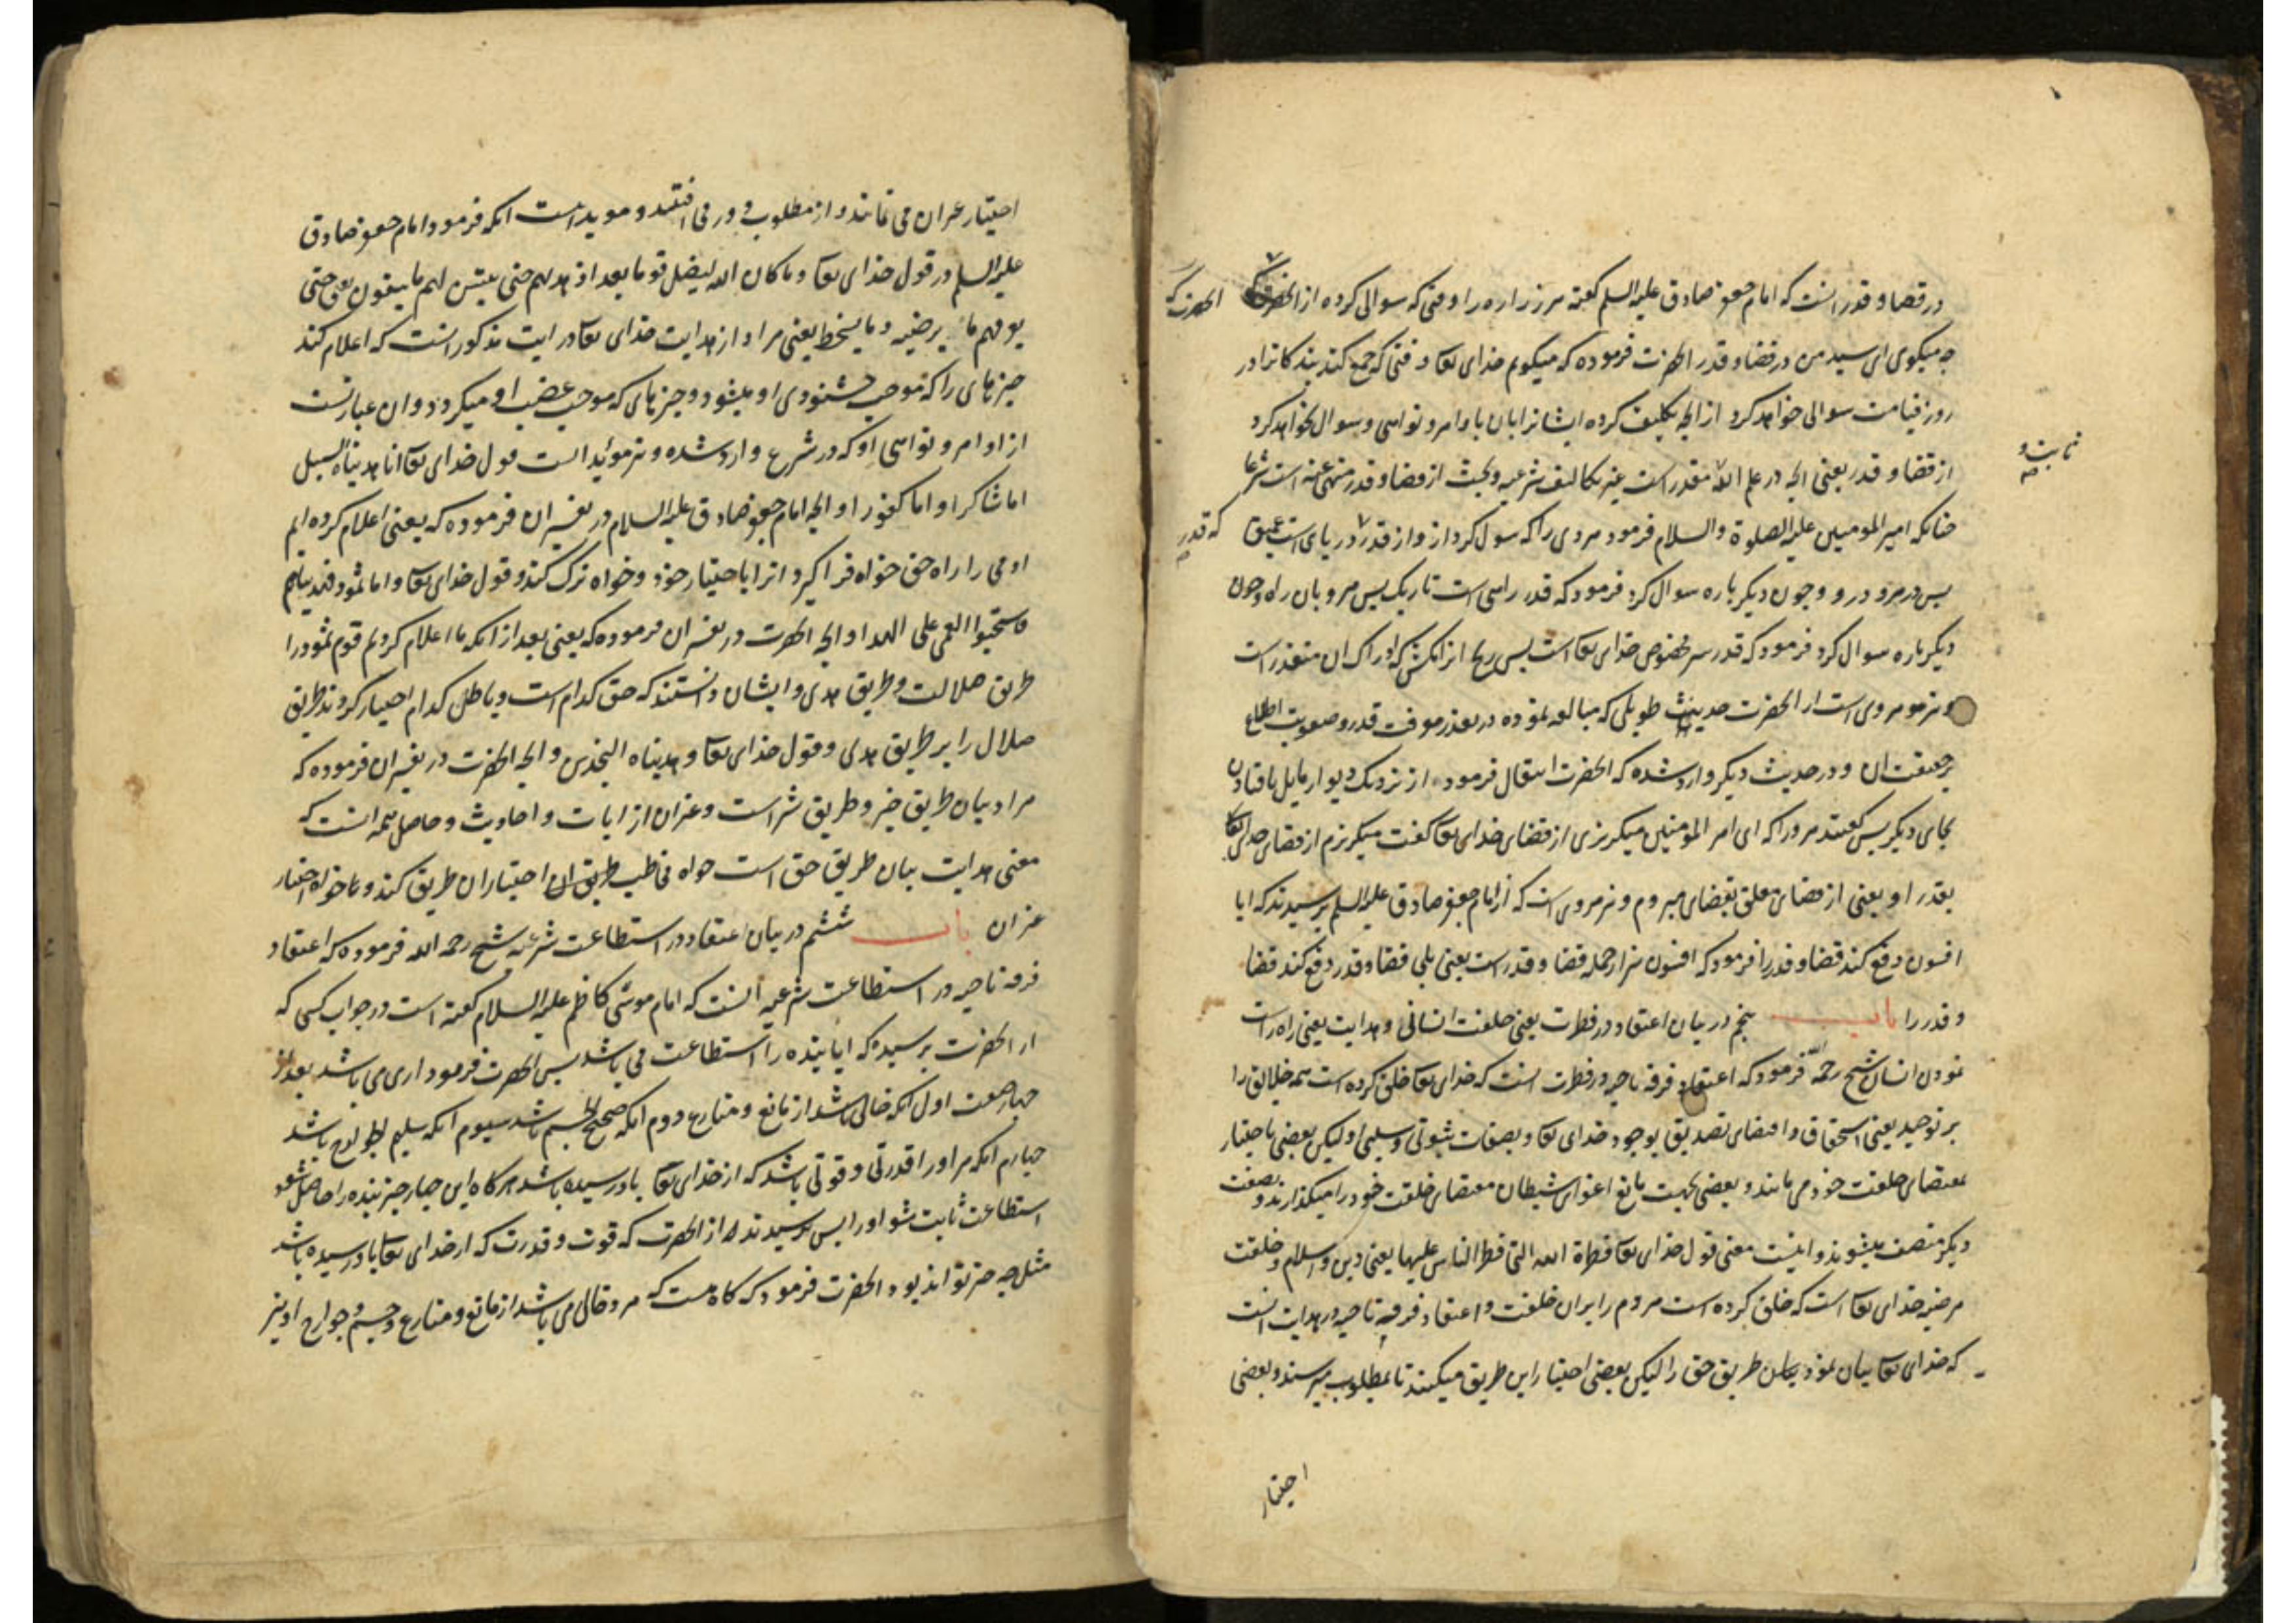 در قضا و قدر انست که امام جعفر صادق علیه السلم گفته مر زراره را وقتی که سوالی کرده از الحضرت
الحضرت که
چه میکوی ای سید من در قضا و قدر الحضرت فرموده که میکویم خدای تعا وقتی که جمع کند بندکانرا در
روز قیامت سوالی خواهد کرد از انچه تکلیف کرده ایشانرا بان باوامر و نواهی و سوال نخواهد کرد
ثابت و
از قضا و قدر یعنی انچه در علم الله مقدر است غیر تکالیف شرعیه و بحث از قضا و قدر منهی عنه است شرعا
چنانکه امیر المومنین علیه الصلوة والسلام فرمود مردی را که سول کرد ازو از قدر دریای است عمیق
که قدر
پس در مرو درو و چون دیکر باره سوال کرد فرمود که قدر راهی است تاریک پس مرو بان راه و چون
دیکر باره سوال کرد فرمود که قدر سر مخصوص خدای تعا است پس ادراک ان متعذر است
و نیز مروی است از الحضرت حدیث طویلی که مبالغه نموده در تعذر معرفت قدر و صعوبت اطلاع
بر حقیقت ان و در حدیث دیکر وارد شده که الحضرت انتقال فرمود از نزدیک دیوار مایل بافتادن
بجای دیکر پس کفتند مر ورا که ای امیر المومنین میکریزی از قضای خدای تعا کفت میکریزم از قضای خدای تعا
بقدر او یعنی از قضای معلق بقضای مبروم و نیز مروی است که از امام جعفر صادق علیه السلم پرسیدند که ایا
افسون دفع کند قضا و قدر را فرمود که افسون نیز از جمله قضا و قدر است یعنی بلی قضا و قدر دفع کند قضا
و قدر را باب پنجم در بیان اعتقاد در فطرت یعنی خلقت انسانی و هدایت یعنی راه راست
نمودن انسان شیخ رحمه الله فرمود که اعتقاد فرقه ناجیه در فطرت انست که خدای تعا خلق کرده است همه خلایق را
بر توحید یعنی استحقاق و اقتضای تصدیق بوجود خدای تعا و بصفات ثبوتی و سلبی او لیکن بعضی باختیار
بمقتضای خلقت خود می مانند و بعضی بجهت مانع اغوای شیطان مقتضای خلقت خود را میکذارند و بصفت
دیکر متصف میشوند و اینست معنی قول خدای تعا فطرة الله التی فطر الناس علیها یعنی دین اسلام و خلقت
مرضیه خدای تعا است که خلق کرده است مردم را بران خلقت و اعتقاد فرقه ناجیه در هدایت انست
که خدای تعا بیان نمود بیان طریق حق را لیکن بعضی اختیار این طریق میکنند تا بمطلوب میرسند و بعضی
اختیار
اختیار غیر ان می نمایند و از مطلوب دور می افتند و موید انست انکه فرمود امام جعفر صادق
علیه السلم در قول خدای تعا و ما کان الله لیضل قوما بعد اذ هدیهم حتی یبین لهم ما یتقون یعنی حتی
یعرفهم ما یرضیه و ما یسخط یعنی مراد از هدایت خدای تعا در ایت مذکور انست که اعلام کند
چیزهای را که موجب خشنودی او میشود و چیزهای که موجب غضب او میکردد و ان عبارتست
از اوامر و نواهی او که در شرع وارد شده و نیز موئید انست قول خدای تعا انا هدیناه السبیل
اما شاکرا و اما کفورا و انچه امام جعفر صادق علیه السلام در تفسیر ان فرموده که یعنی اعلام کرده ایم
ادمی را راه حق خواه فرا کیرد انرا باختیار خود و خواه ترک کند و قول خدای تعا و اما ثمود فهدیناهم
فاستحبوا العمی علی الهدا و انچه الحضرت در تفسیر ان فرموده که یعنی بعد از انکه ما اعلام کردیم قوم ثمود را
طریق ضلالت و طریق هدی و ایشان دانستند که حق کدام است و باطل کدام اختیار کردند طریق
ضلال را بر طریق هدی و قول خدای تعا و هدیناه النجدین و انچه الحضرت در تفسیر ان فرموده که
مراد بیان طریق خیر و طریق شر است و غیر ان از ایات و احادیث و حاصل همه انست که
معنی هدایت بیان طریق حق است خواه مخاطب طریق ان اختیار ان طریق کند و یا خواه اختیار
غیر ان باب ششم در بیان اعتقاد در استطاعت شرعیه شیخ رحمه الله فرموده که اعتقاد
فرقه ناجیه در استطاعت شرعیه انست که امام موسی کاظم علیه السلام کفته است در جواب کسی که
از الحضرت پرسید که ایا بنده را استطاعت می باشد پس الحضرت فرمود اری می باشد بعد از
چهار صفت اول انکه خالی باشد از مانع و منازع دوم انکه صحیح الجسم باشد سیوم انکه سلیم الجوارح باشد
چهارم انکه مر اورا قدرتی و قوتی باشد که از خدای تعا باو رسیده باشد هر کاه این چهار چیز بنده را حاصل شود
استطاعت ثابت شود اورا پس پرسیدند از الحضرت که قوت و قدرت که از خدای تعا باو رسیده باشد
مثل چه چیز تواند بود الحضرت فرمود که کاه هست که مرد خالی می باشد از مانع و منازع و جسم و جوارح او نیز